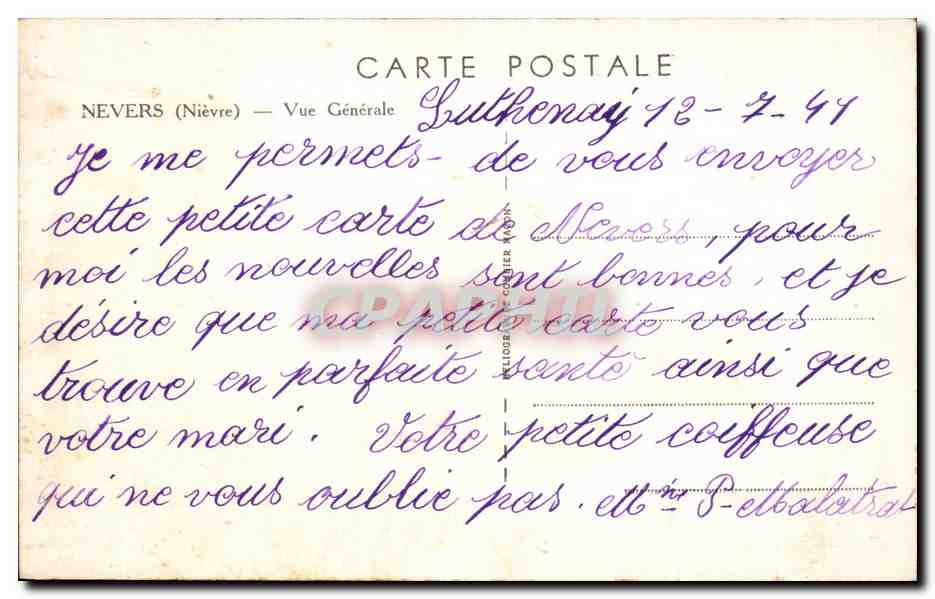 CARTE POSTALE
NEVERS (Nièvre) — Vue Générale
Luthenay 12-7-41
Je me permets de vous envoyer
cette petite carte de Nevers, pour
moi les nouvelles sont bonnes, et je
désire que ma petite carte vous
trouve en parfaite santé ainsi que
votre mari. Votre petite coiffeuse
qui ne vous oublie pas. Mme P-Malatrat
CPARAMA